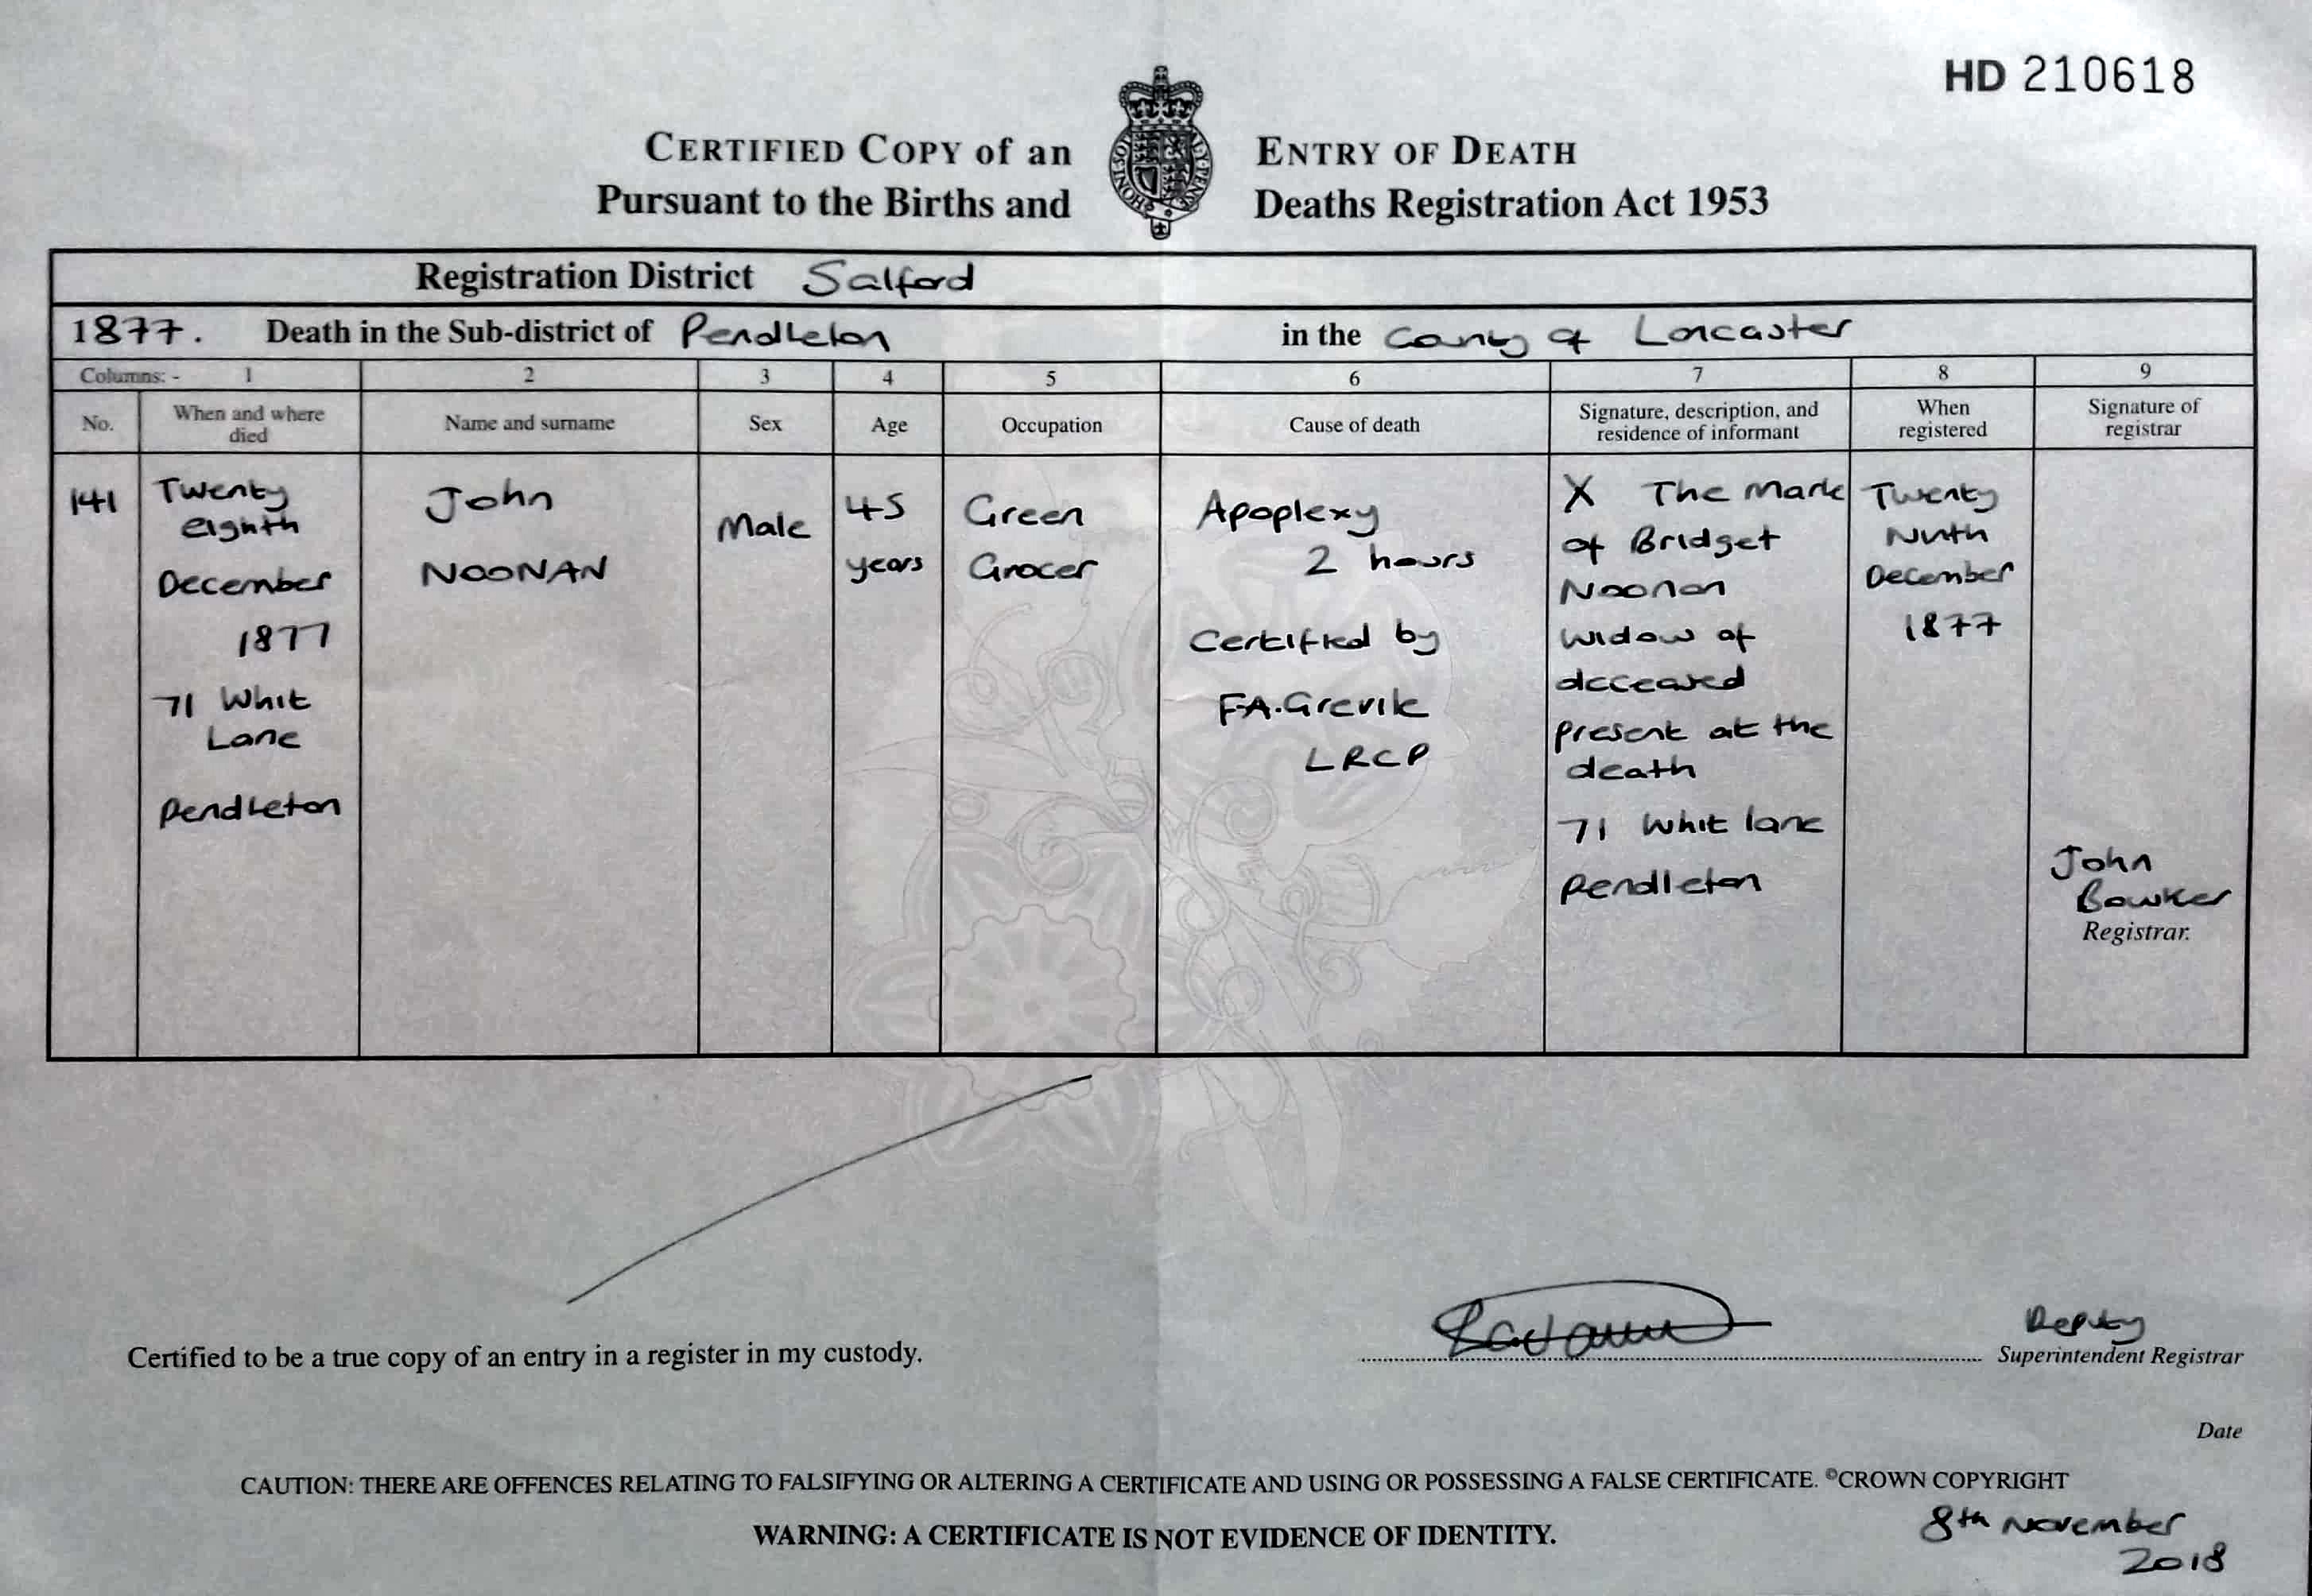 HD 210618
CERTIFIED COPY of an ENTRY OF DEATH
Pursuant to the Births and Deaths Registration Act 1953
HONI·SOIT ALY·PENSE
Registration District Salford
1877. Death in the Sub-district of Pendleton in the County of Lancaster
Columns: - 1 2 3 4 5 6 7 8 9
No.
When and where
died
Name and surname
Sex
Age
Occupation
Cause of death
Signature, description, and
residence of informant
When
registered
Signature of
registrar
141
Twenty
eighth
December
1877
71 Whit
Lane
Pendleton
John
NOONAN
Male
45
years
Green
Grocer
Apoplexy
2 hours
Certified by
F.A. Grevile
LRCP
X The Mark
of Bridget
Noonan
widow of
deceased
present at the
death
71 Whit lane
Pendleton
Twenty
Ninth
December
1877
John
Bowker
Registrar.
Certified to be a true copy of an entry in a register in my custody.
Deputy
Superintendent Registrar
Date
CAUTION: THERE ARE OFFENCES RELATING TO FALSIFYING OR ALTERING A CERTIFICATE AND USING OR POSSESSING A FALSE CERTIFICATE. ©CROWN COPYRIGHT
WARNING: A CERTIFICATE IS NOT EVIDENCE OF IDENTITY.
8th November
2018